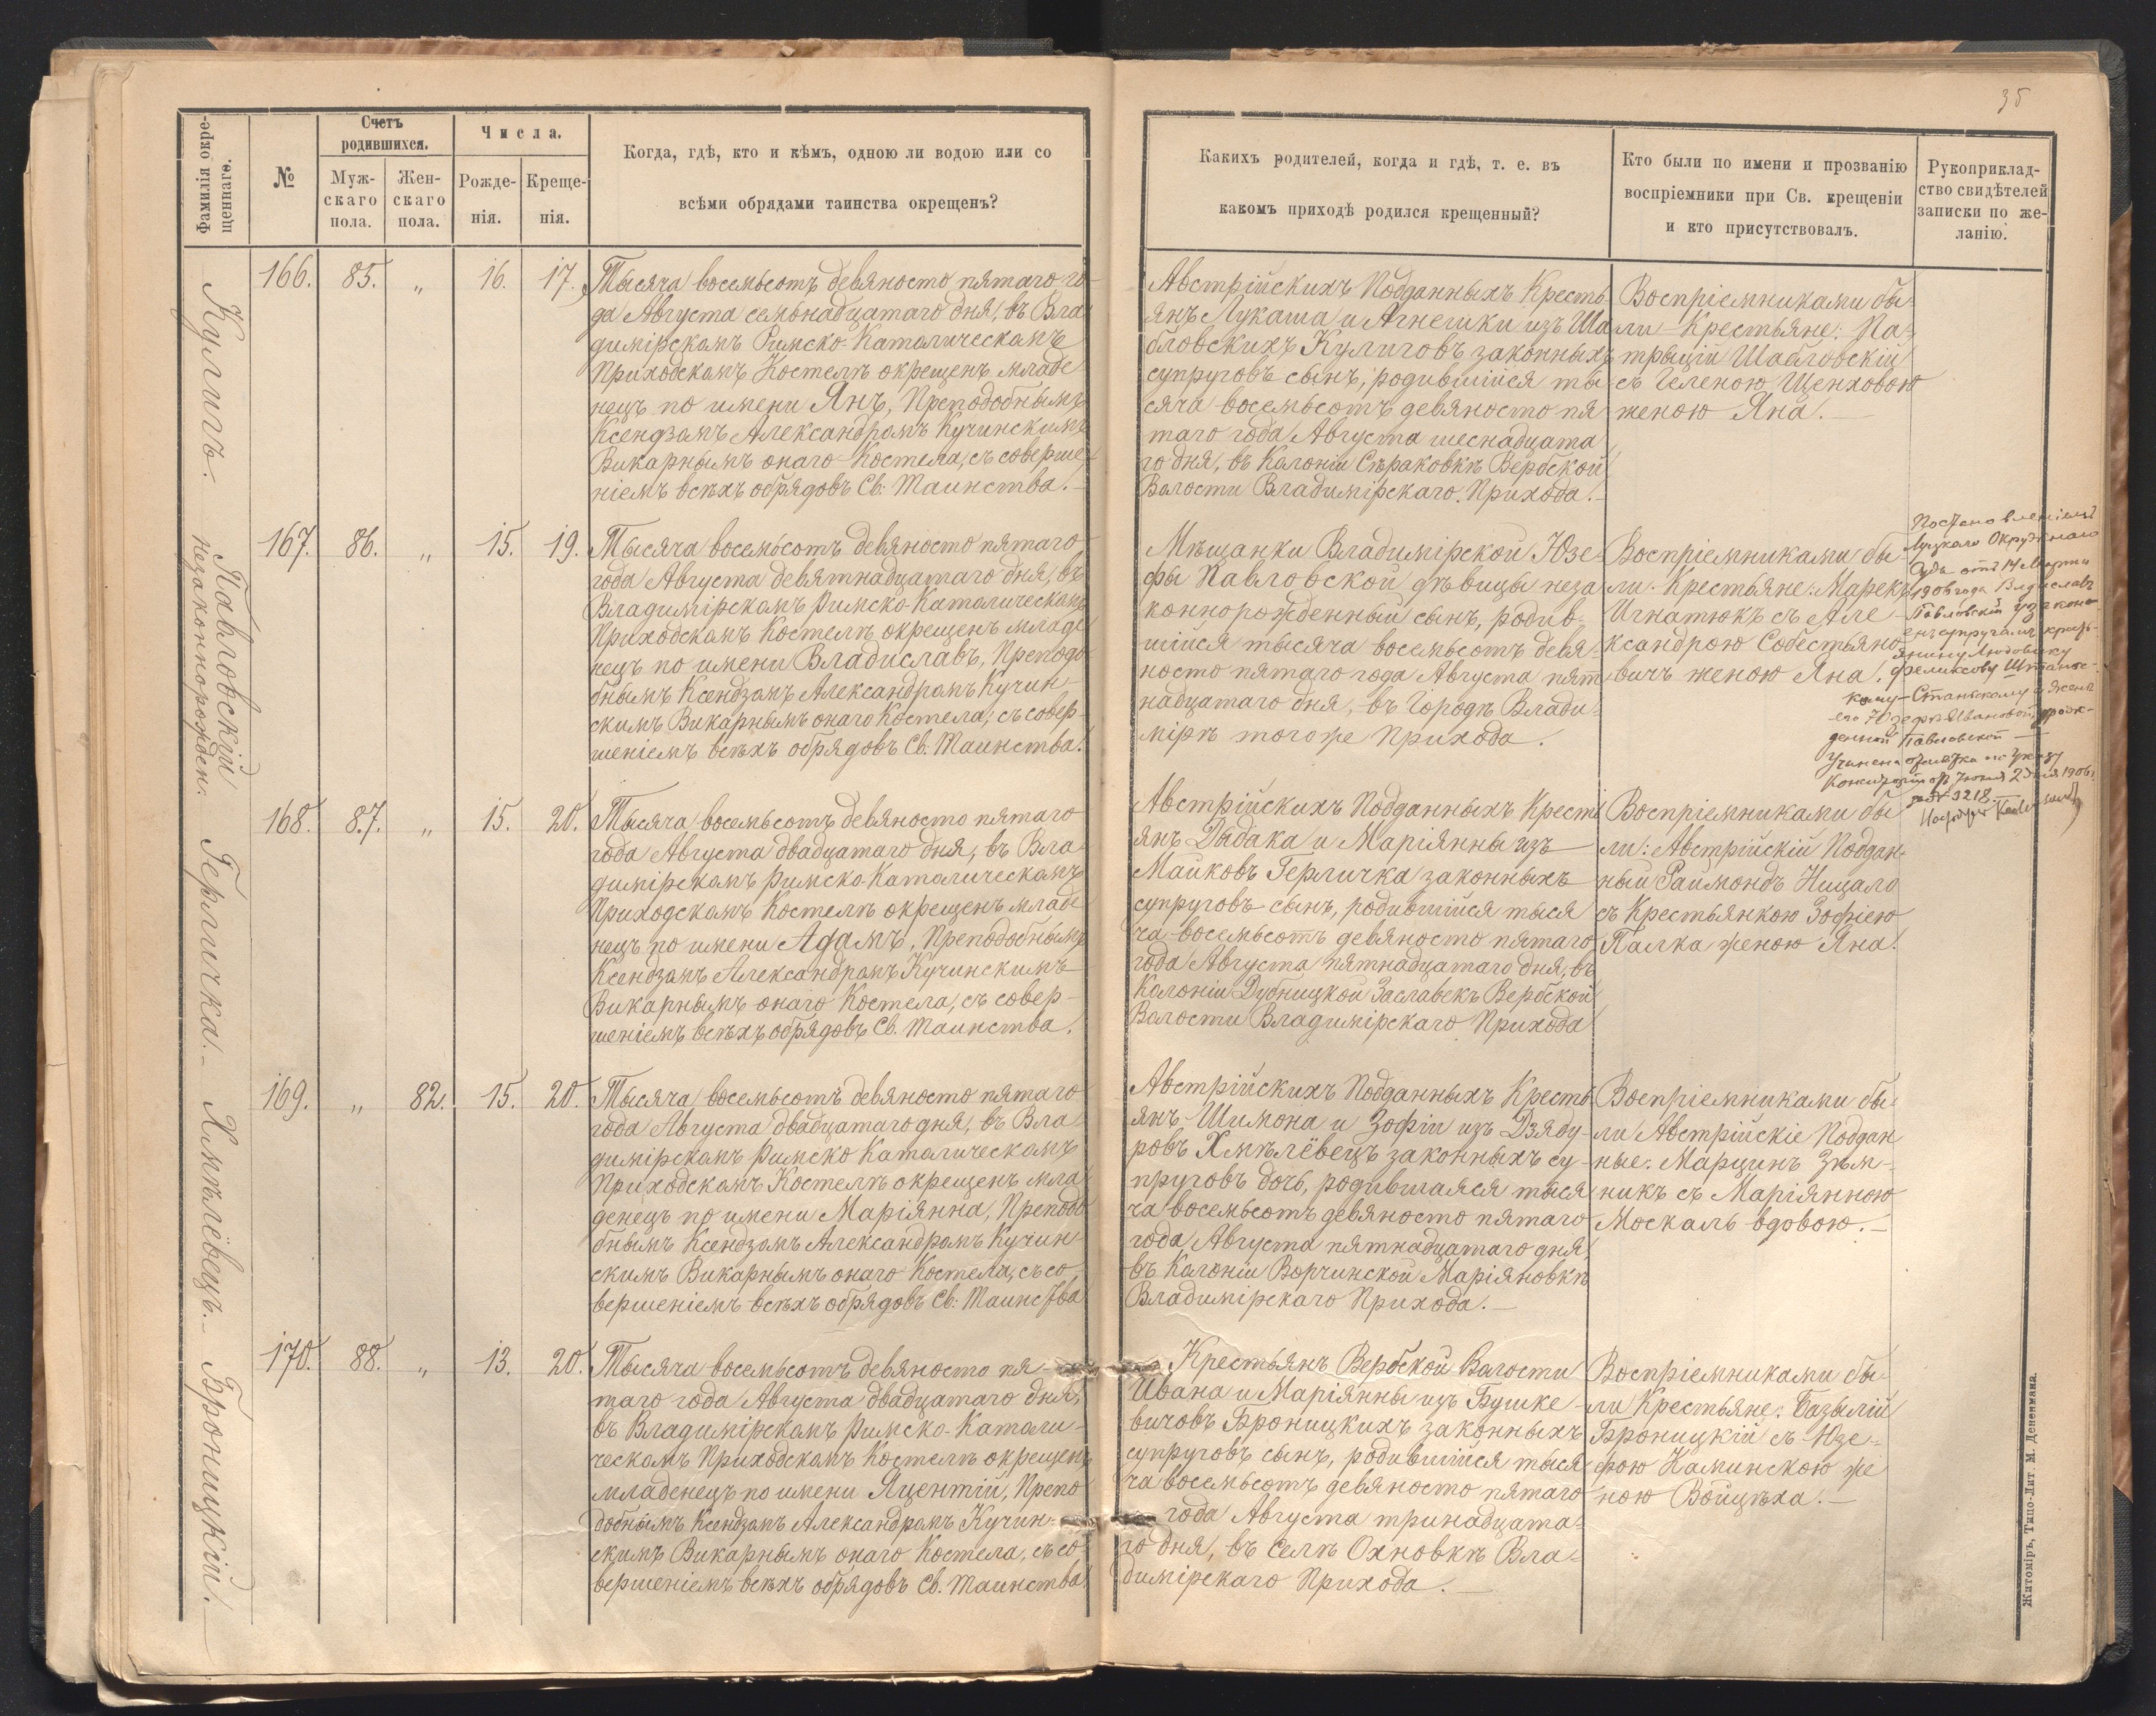 35
Фамилія окре-
щеннаго.
№
Счетъ
родившихся.
Муж-
скаго
пола.
Жен-
скаго
пола.
Числа.
Рожде-
нія.
Креще-
нія.
Когда, гдѣ, кто и кѣмъ, одною ли водою или со
всѣми обрядами таинства окрещенъ?
Какихъ родителей, когда и гдѣ, т. е. въ
какомъ приходѣ родился крещенный?
Кто были по имени и прозванію
воспріемники при Св. крещеніи
и кто присутствовалъ.
Рукоприклад-
ство свидѣтелей
записки по же-
ланію.
Кулигъ.
166. 85. „ 16. 17.
Тысяча восемьсотъ девяносто пятаго го-
да Августа семьнадцатаго дня, въ Вла
димірскомъ Римско-Католическомъ
Приходскомъ Костелѣ окрещенъ младе
нецъ по имени Янъ, Преподобнымъ
Ксендзомъ Александромъ Кучинскимъ
Викарнымъ онаго Костела, съ соверше
ніемъ всѣхъ обрядовъ Св: Таинства.
Австрійскихъ Подданныхъ Кресть
янъ Лукаша и Агнешки изъ Ша
бловскихъ Кулиговъ законныхъ
супруговъ сынъ, родившійся ты
сяча восемьсотъ девяносто пя
таго года Августа шеснадцата
го дня, въ Колоніи Сѣраковкѣ Вербской
Волости Владимірскаго Прихода.
Воспріемниками бы-
ли Крестьяне: Па-
трыцій Шабловскій
съ Геленою Щенховою
женою Яна.
Павловскій
незаконнорожден.
167. 86. „ 15. 19.
Тысяча восемьсотъ девяносто пятаго
года Августа девятнадцатаго дня, въ
Владимірскомъ Римско-Католическомъ
Приходскомъ Костелѣ окрещенъ младе
нецъ по имени Владиславъ, Преподо
бнымъ Ксендзомъ Александромъ Кучин
скимъ Викарнымъ онаго Костела, съ совер-
шеніемъ всѣхъ обрядовъ Св. Таинства.
Мѣщанки Владимірской Юзе-
фы Павловской дѣвицы неза
коннорожденный сынъ, родив-
шійся тысяча восемьсотъ девя-
носто пятаго года Августа пят
надцатаго дня, въ Городѣ Влади-
мірѣ тогоже Прихода.
Воспріемниками бы-
ли: Крестьяне: Марекъ
Игнатюкъ съ Але
ксандрою Собестьяно
вичъ женою Яна.
Постановленіемъ
Луцкаго Окружнаго
Суда отъ 14 Марта
1906 года Владиславъ
Павловскій узаконе-
енъ супругами кресть-
янину Людовику
Феликсову
кому-Станьскому и женѣ
его Юзефѣ Ивановой, урож-
денной Павловской
Учинена отмѣтка по указу
Консисторіи отъ Іюня 2 дня 1906 г.
за № 3218.
Герличка.
168. 87. „ 15. 20.
Тысяча восемьсотъ девяносто пятаго
года Августа двадцатаго дня, въ Вла
димірскомъ Римско-Католическомъ
Приходскомъ Костелѣ окрещенъ младе
нецъ по имени Адамъ, Преподобнымъ
Ксендзомъ Александромъ Кучинскимъ
Викарнымъ онаго Костела, съ совер-
шеніемъ всѣхъ обрядовъ Св. Таинства.
Австрійскихъ Подданныхъ Кресть
янъ Дыдака и Маріянны изъ
Майковъ Герличка законныхъ
супруговъ сынъ, родившійся тыся
ча восемьсотъ девяносто пятаго
года Августа пятнадцатаго дня, въ
Колоніи Дубницкой Заславекъ Вербской
Волости Владимірскаго Прихода
Воспріемниками бы
ли: Австрійскій Поддан-
ный Раймондъ Ницало
съ Крестьянкою Зофіею
Палка женою Яна.
Хмѣлёвецъ.
169. „ 82. 15. 20.
Тысяча восемьсотъ девяносто пятаго
года Августа двадцатаго дня, въ Вла
димірскомъ Римско Католическомъ
Приходскомъ Костелѣ окрещенъ мла
денецъ по имени Маріянна, Преподо
бнымъ Ксендзомъ Александромъ Кучин
скимъ Викарнымъ онаго Костела, съ со
вершеніемъ всѣхъ обрядовъ Св: Таинства
Австрійскихъ Подданныхъ Кресть
янъ Шимона и Зофіи изъ Дзяду-
ровъ Хмѣлёвецъ законныхъ су-
пруговъ дочь, родившаяся тыся
ча восемьсотъ девяносто пятаго
года Августа пятнадцатаго дня,
въ Колоніи Ворчинской Маріяновкѣ
Владимірскаго Прихода.
Воспріемниками бы-
ли Австрійскіе Поддан
ные: Марцинъ Зѣм-
никъ съ Маріянною
Москаль вдовою.
Броницкій.
170. 88. „ 13. 20.
Тысяча восемьсотъ девяносто пя-
таго года Августа двадцатаго дня,
въ Владимірскомъ Римско-Католи-
ческомъ Приходскомъ Костелѣ окрещенъ
младенецъ по имени Яцентій, Препо
добнымъ Ксендзомъ Александромъ Кучин-
скимъ Викарнымъ онаго Костела, съ со
вершеніемъ всѣхъ обрядовъ Св. Таинства
Крестьянъ Вербской Волости
Ивана и Маріянны изъ Бушке-
вичовъ Броницкихъ законныхъ
супруговъ сынъ, родившійся тыся
ча восемьсотъ девяносто пятаго
года Августа тринадцата-
го дня, въ Селѣ Охновкѣ Вла-
димірскаго Прихода.
Воспріемниками бы-
ли Крестьяне: Базылій
Броницкій съ Юзе-
фою Каминскою же
ною Войцѣха.
Житоміръ, Типо-Лит. М. Дененмана.